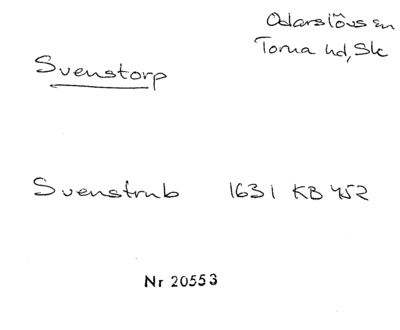 Odarslövs sn
Torna hd, Sk
Svenstorp
Svenstrub 1631 KB 452
Nr 20553